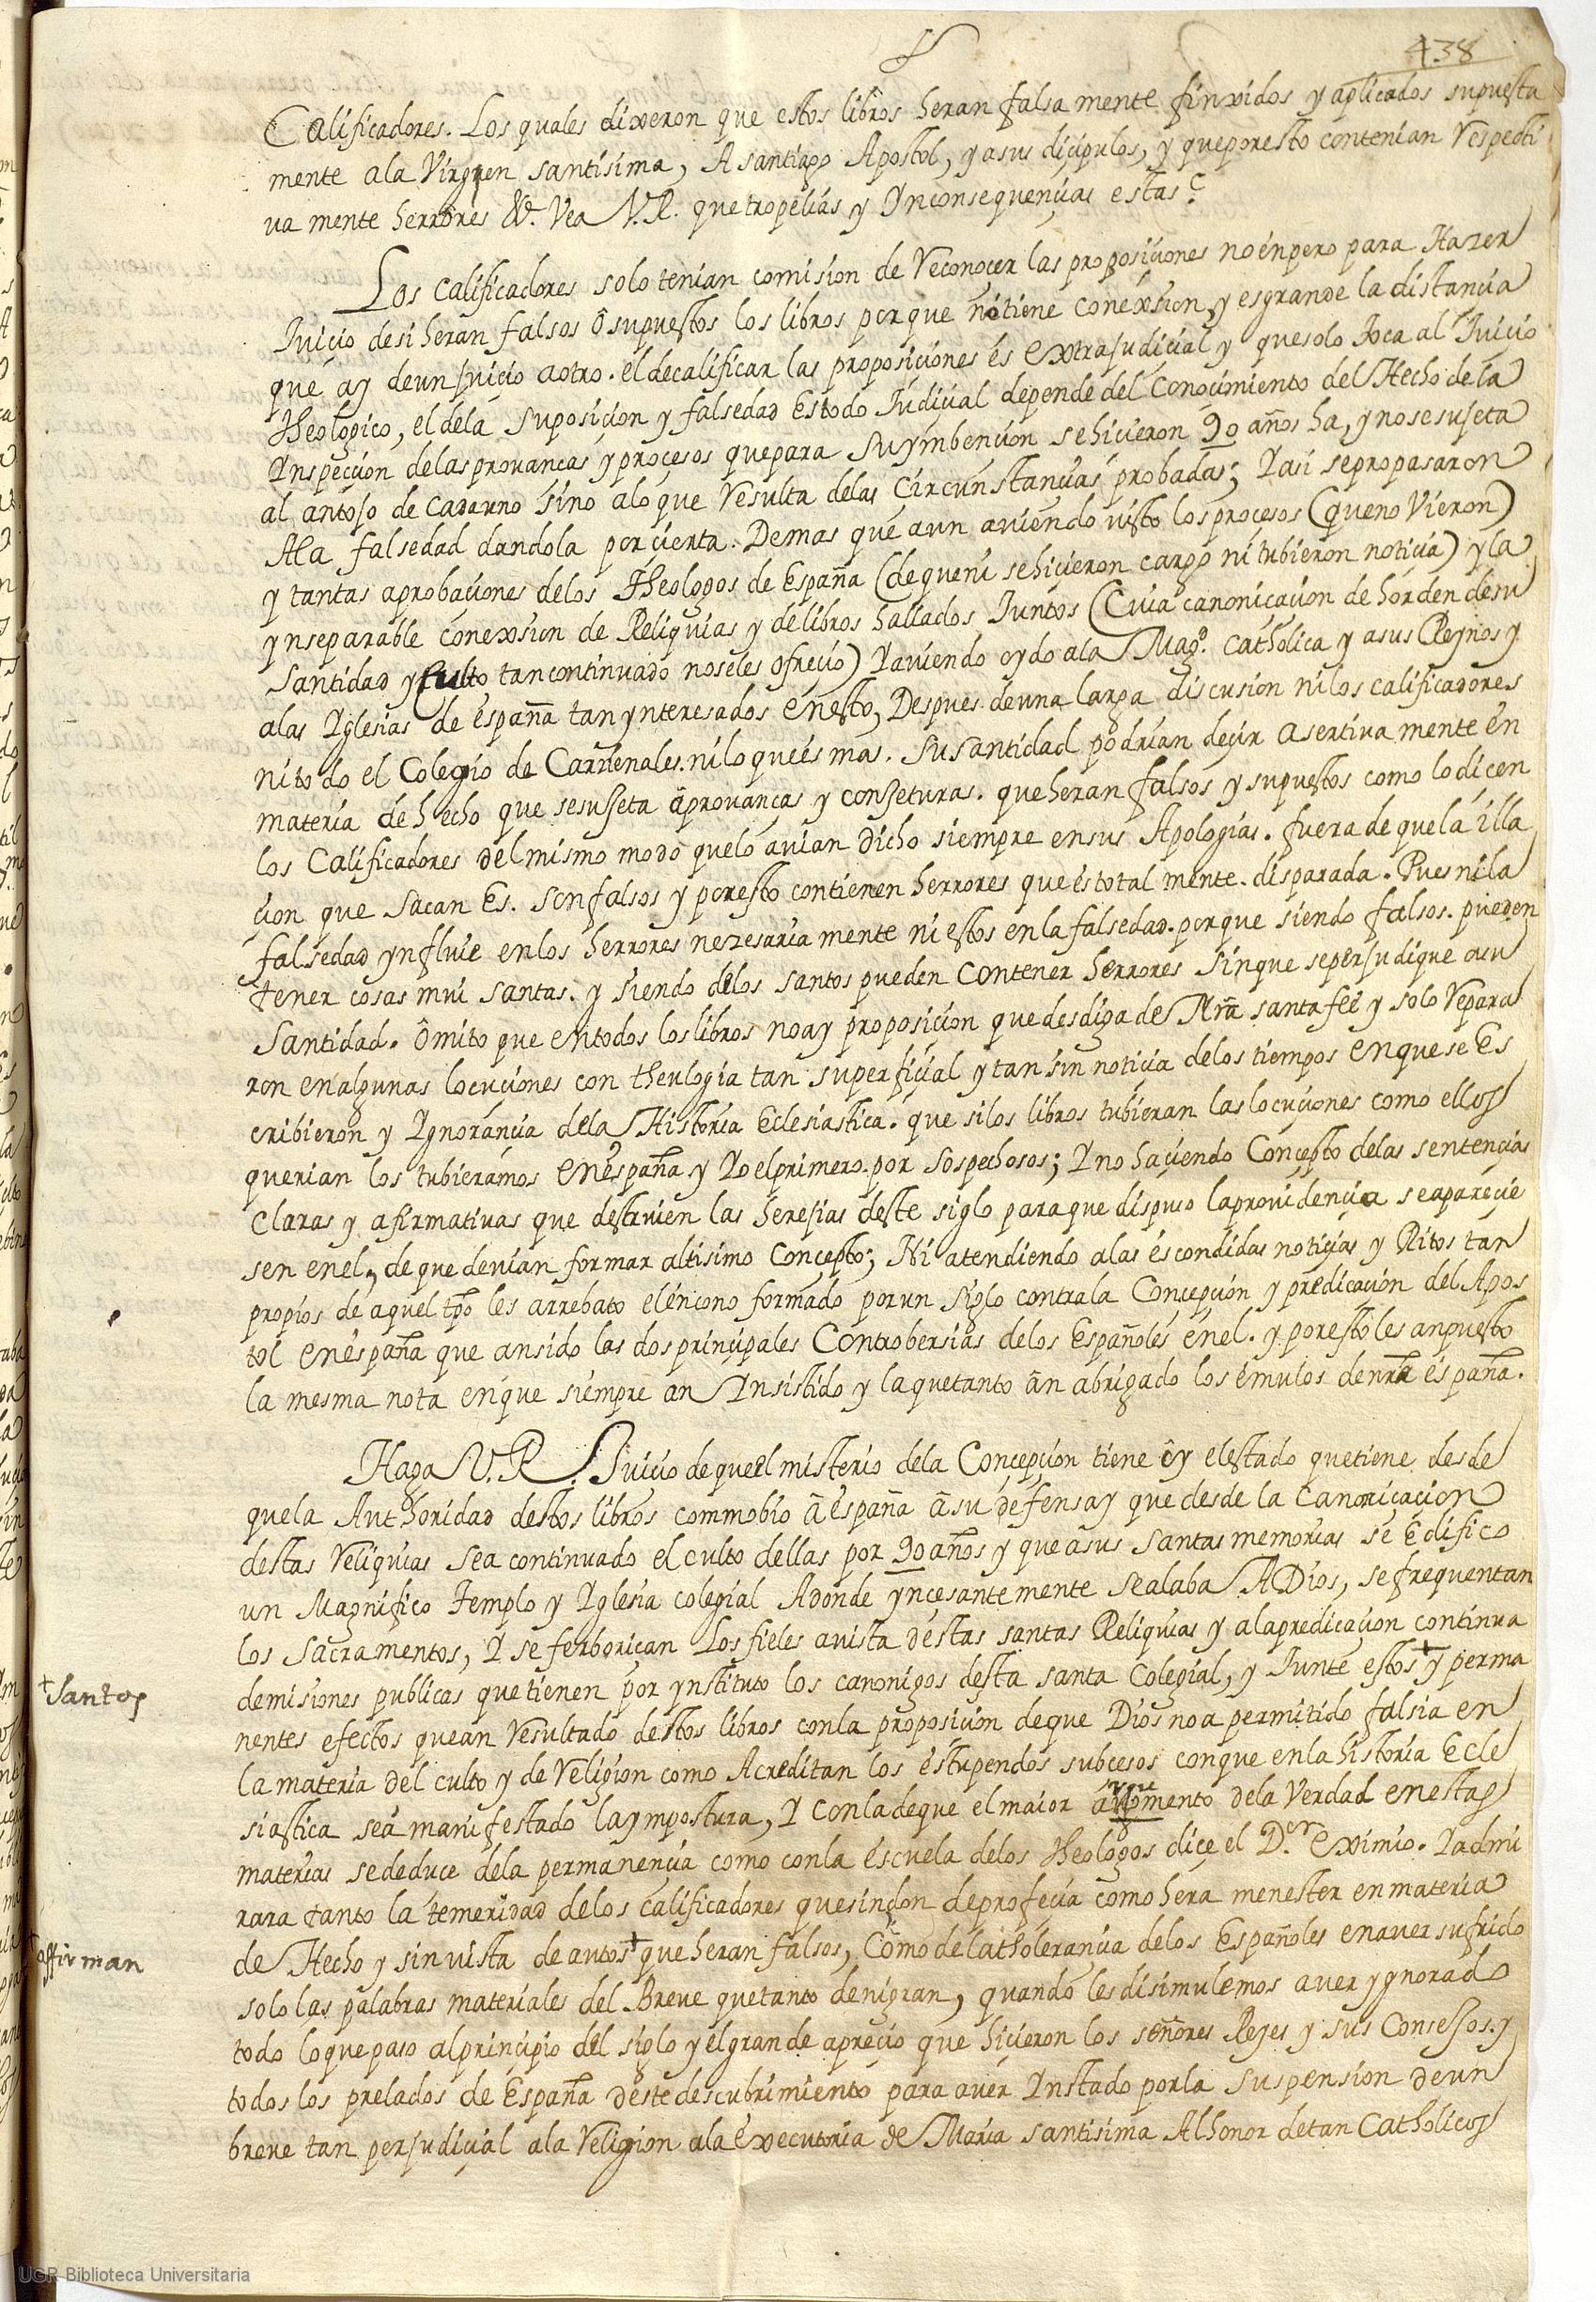 438
Calificadores. Los quales dixeron que estos libros heran falsa mente finxidos y aplicados supuesta
mente ala Virgen santisima, A santiago Apostol, y asus dicipulos, y queporesto contenian Respecti
va mente herrores &c. Vea V. R. que tropelias y Ynconsequencias estas?
Los calificadores solo tenian comision de Reconocer las proposiciones no énpero para Hazer
Juicio desi heran falsos ô supuestos los libros porque no tiene conéxsion, y esgrande la distancia
que ay deun juicio aotro. el decalificar las proposiciones és extrajudicial y quesolo Toca al Juicio
Theologico, el dela suposicion y falsedad Es todo Judicial depende del Conocimiento del Hecho dela
Ynspeccion delas provancas y procesos quepara suymbencion sehicieron 90 años ha, y nosesujeta
al antojo de cadauno sino alo que Resulta delas Circunstancias probadas; Y asi sepropasaron
Ala falsedad dandola por cierta. Demas que aun aviendo visto los procesos (que no Vieron)
y tantas aprobaciones delos Theologos de España (de queni sehicieron cargo ni tubieron noticia) y la
ynseparable conexsion de Reliquias y delibros hallados Juntos (Cuia canonicacion de horden desu
Santidad y Culto tan continuado noseles ofrecio) Y aviendo oydo ala Magd. catholica y asus Reynos y
alas Yglesias de españa tan ynteresados énesto, Despues deuna larga discusion ni los calificadores
ni todo el Colegio de Cardenales. ni lo queés mas. su santidad podrian deçir asertiva mente én
materia de hecho que sesujeta âprovancas y conjeturas. que heran falsos y supuestos como lo dicen
los Calificadores del mismo modo quelo avian dicho siempre ensus Apologias. fuera de que la illa
cion que sacan Es. son falsos y poresto contienen herrores que és total mente. disparada. Pues ni la
falsedad ynfluie enlos herrores nezesaria mente ni estos enla falsedad. porque siendo falsos. pueden
tener cosas mui santas. y siendo delos santos pueden contener herrores sinque seperjudique asu
santidad. Ômito que entodos los libros noay proposicion que desdiga de Nrã santa fée y solo Repara
ron enalgunas locuciones con theulogia tan superficial y tan sin noticia delos tiempos enque se Es
cribieron y Ygnorancia dela Historia Eclesiastica. que silos libros tubieran las locuciones como ellos
querian los tubieramos énespaña y Yo elprimero. por sospechosos; Y no haciendo Concepto delas sentencias
Claras y afirmativas que destruien las herejias deste siglo paraque dispuso laprovidencia seaparecie
sen enel, de que devian formar altisimo Concepto; Ni atendiendo alas éscondidas noticias y Ritos tan
propios de aquel tpo les arrebato eléncono formado porun siglo contrala Concepcion y predicacion del Apos
tol en españa que ansido las dos principales Controbersias delos Españoles enel. y poresto les anpuesto
la mesma nota enque siempre an Ynsistido y laquetanto ân abrigado los émulos denra españa.
Haga V. R. Juicio de queel misterio dela Concepcion tiene oy elestado quetiene desde
quela Authoridad destos libros commobio â españa âsu defensa y que desde la canonicacion
destas Reliquias sea continuado el culto dellas por 90 años y que asus santas memorias se Edifico
un Magnifico Templo y Yglesia colegial Adonde yncesantemente sealaba A Dios, se frequentan
los sacramentos, Y se ferborican los fieles avista destas santas Reliquias y ala predicacion continua
demisiones publicas quetienen por ynstituto los canonigos desta santa colegial, y Junte estos + y perma
+ santos
nentes efectos quean Resultado destos libros conla proposicion deque Dios no a permitido falsia en
la materia del culto y de Religion como Acreditan los éstupendos subcesos conque enla historia Ecle
siastica sea manifestado laympostura, Y conladeque el maior argumento dela Verdad enestas
materias sededuce dela permanencia como conla éscuela delos theologos dice el D.or eximio. Y admi
rara tanto la temeridad delos calificadores quesindon deprofecia como hera menester enmateria
de Hecho y sin vista de autos + que heran falsos, Como delatholerancia delos Españoles enaver sufrido
+ affirman
solo las palabras materiales del Breve quetanto denigran, quando les disimulemos aver ygnorado
todo loquepaso alprincipio del siglo y elgrande aprecio que hicieron los señores Reyes y sus Consejos. y
todos los prelados de España deste descubrimiento para avér Ynstado porla suspension deun
breve tan perjudicial ala Religion ala éxecutoria de Maria santisima Al honor detan Catholicos
UGR Biblioteca Universitaria